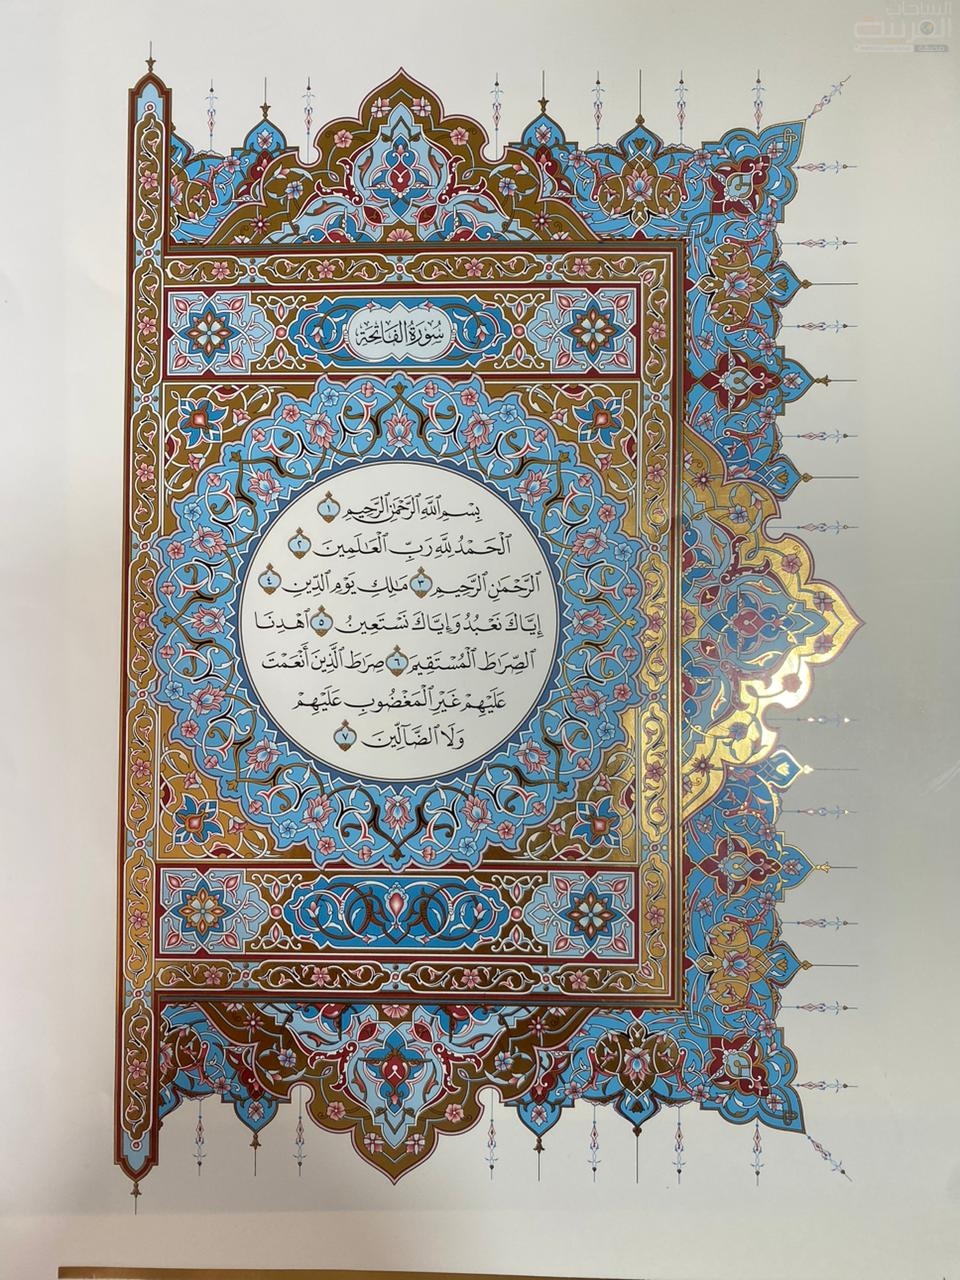 الساحات
العربية
سُورَةُ الفَاتِحَةِ
بِسْمِ ٱللَّهِ ٱلرَّحْمَٰنِ ٱلرَّحِيمِ ١
ٱلْحَمْدُ لِلَّهِ رَبِّ ٱلْعَٰلَمِينَ ٢
ٱلرَّحْمَٰنِ ٱلرَّحِيمِ ٣ مَٰلِكِ يَوْمِ ٱلدِّينِ ٤
إِيَّاكَ نَعْبُدُ وَإِيَّاكَ نَسْتَعِينُ ٥ ٱهْدِنَا
ٱلصِّرَٰطَ ٱلْمُسْتَقِيمَ ٦ صِرَٰطَ ٱلَّذِينَ أَنْعَمْتَ
عَلَيْهِمْ غَيْرِ ٱلْمَغْضُوبِ عَلَيْهِمْ
وَلَا ٱلضَّآلِّينَ ٧